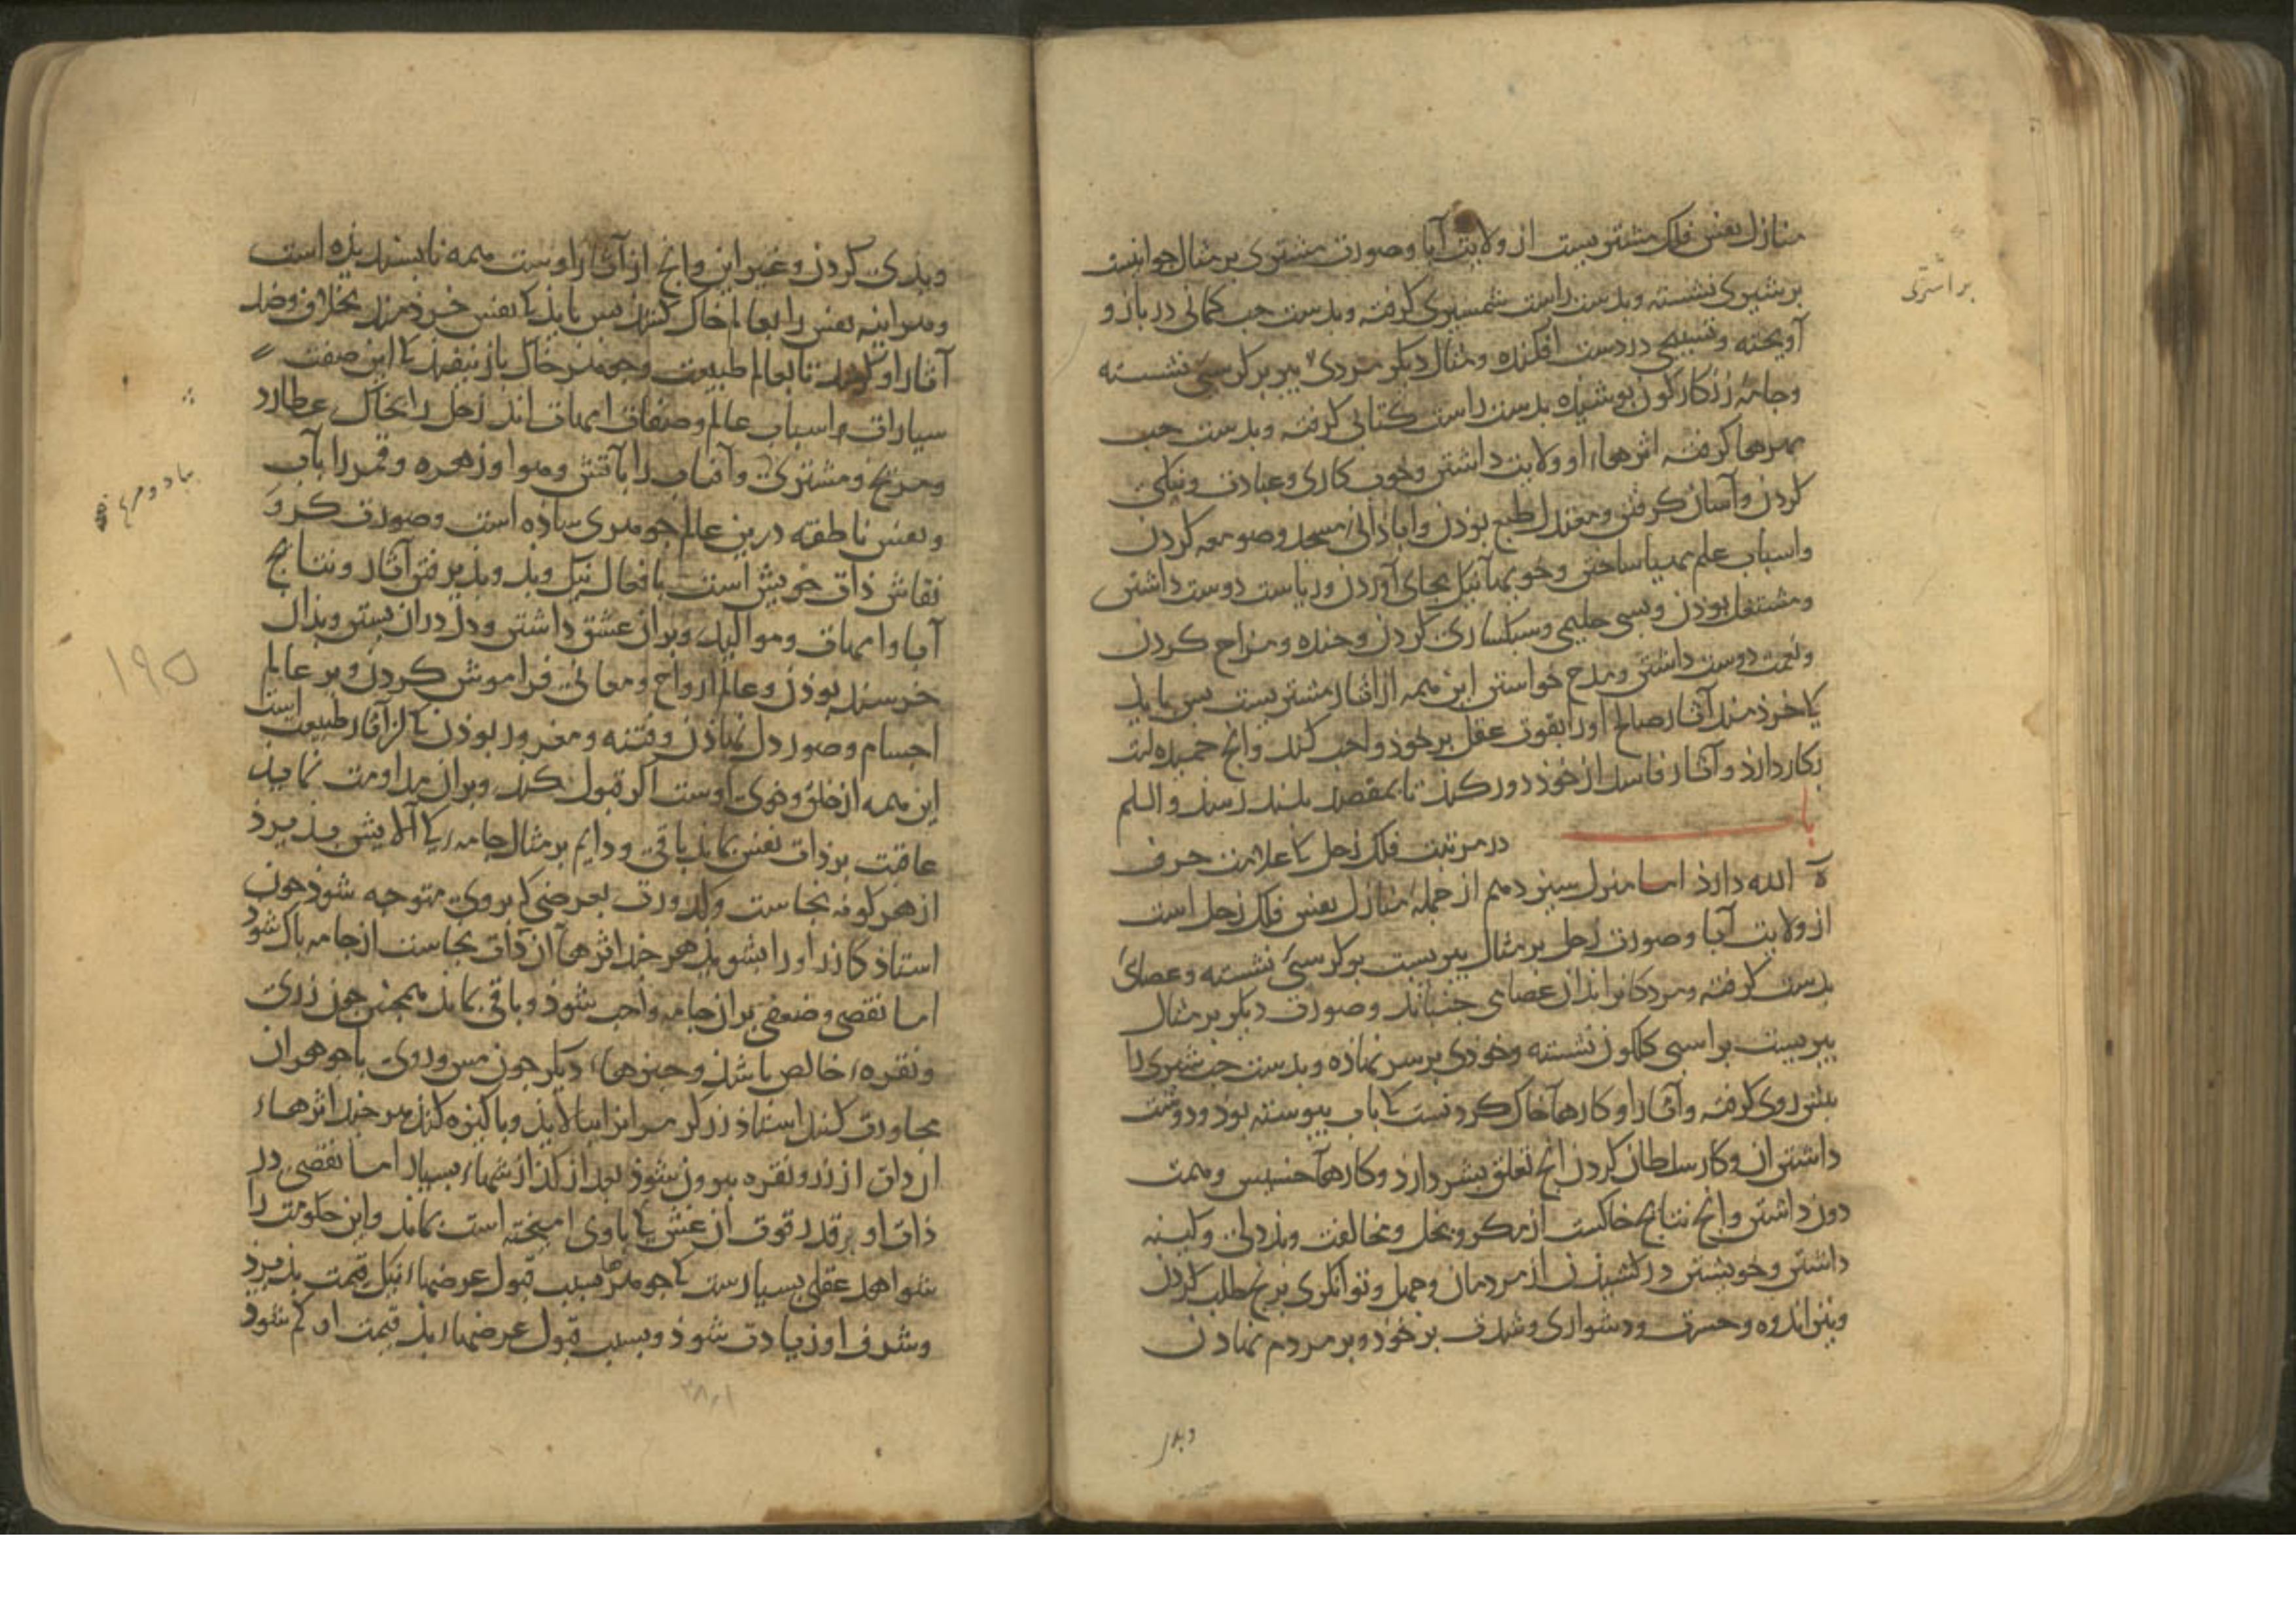 منازل نفس فلک مشتریست از ولایت آبا وصورت مشتری بر مثال جوانیست
بر شیری نشسته وبدست راست شمشیری کرفته وبدست جب کمانی در بازو
آویخته وتسبیحی در دست افکنده ومثال دیکر مردی بیر بر کرسی نشسته
وجامهٔ زنکارکون بوشیده بدست راست کتابی کرفته وبدست جب
مهرها کرفته اثرهاء او ولایت داشتن وخوب کاری وعبادت ونیکی
کردن وآسان کرفتن ومعتدل طبع بوذن واباذانی مسجد وصومعه کردن
واسباب علم مهیا ساختن وخویها نیک بجای آوردن وریاست دوست داشتن
ومشتغل بوذن وبسی حلیمی وسبکساری کردن وخنده ومزاح کردن
ونعمت دوست داشتن ومدح خواستن این همه از آثار مشتریست بس بایذ
کا خردمند آثار صالح اورا بقوت عقل بر خوذ واجب کند وانج حمیده است
بکار دارذ وآثار فاسد از خوذ دور کند تا بمقصد بلند رسذ والسلم
باب
در مرتبت فلک زحل کا علامت حرف
ة الله دارذ اما منزل سیزدهم از جملهٔ منازل نفس فلک زحل است
از ولایت آبا وصورت زحل بر مثال بیریست بر کرسی نشسته وعصای
بدست کرفته ومردکانرا بدان عصا می جنباند وصورت دیکر بر مثال
بیریست بر اسبی کلکون نشسته وخوذی بر سر نهاذه وبدست جب شیری را
بیش روی کرفته وآثار او کارهآ خاک کردنست کا باب بیوسته بوذ ودوست
داشتن آن وکار سلطان کردن انج تعلق بشر دارد وکارهآ خسیس وهمت
دون داشتن وانج نتایج خاکست از مکر وبخل ومخالفت وبددلی وکینه
داشتن وخویشتن در کشیذن از مردمان وجهل وتوانکری برنج طلب کردن
ونیز اندوه وحسرت ودشواری وشدت بر خوذ وبر مردم نهاذن
بر اشتری
وبدی
وبدی کردن وغیر این وانج از آثار اوست همه نابسندیذه است
وهر اینه نفس را بعالم خاک کشند بس بایذ کا نفس خردمند بخلاف وضد
آثار او کوشد تا بعالم طبیعت وجوهر خاک باز نیفتذ کا این صفت
سیارات اسباب عالم وصفات امهات اند زحل را بخاک عطارد
ومریخ ومشتری وآفتاب را بآتش وهوا وزهره وقمر را بآب
ونفس ناطقه درین عالم جوهری ساذه است وصورت کر و
نقاش ذات خویش است بافعال نیک وبد وبذیرفتن آثار ونتایج
آبا وامهات وموالید وبران عشق داشتن ودل دران بستن وبذان
خرسند بوذن وعالم ارواح ومعانی فراموش کردن وبر عالم
اجسام وصور دل نهاذن وفتنه ومغرور بوذن کا از آثار طبیعت است
این همه از خلق وخوی اوست اکر قبول کند وبران مداومت نمایذ
عاقبت بر ذات نفس بماند باقی ودایم بر مثال جامهٔ کا آلایش بذیرذ
از هر کونه نجاست وکدورت بعرضی کا بر وی متوجه شوذ جون
استاذ کازر اورا بشویذ هر جند اثرهآ آن ذات نجاست از جامه باک شوذ
اما نقصی وضعفی بران جامه واجب شوذ وباقی بماند همجنین جون زری
ونقره خالص باشذ وجیزهاء دیکر جون مس وروی با جوهر آن
مجاورت کند استاذ زرکر هر انرا ببالایذ وباکیزه کند هر جند اثرهاء
آن ذات از زر ونقره بیرون شوذ بعد از کداز شهاء بسیار اما نقصی در
ذات او بر قدر قوت آن غش کا با وی امیخته است بماند واین حکومت را
شواهد عقلی بسیارست کا جوهرها بسبب قبول عرضهاء نیک قیمت بذیرذ
وشرف او زیادت شوذ وبسبب قبول عرضهاء بذ قیمت او کم شوذ
۱۹۵